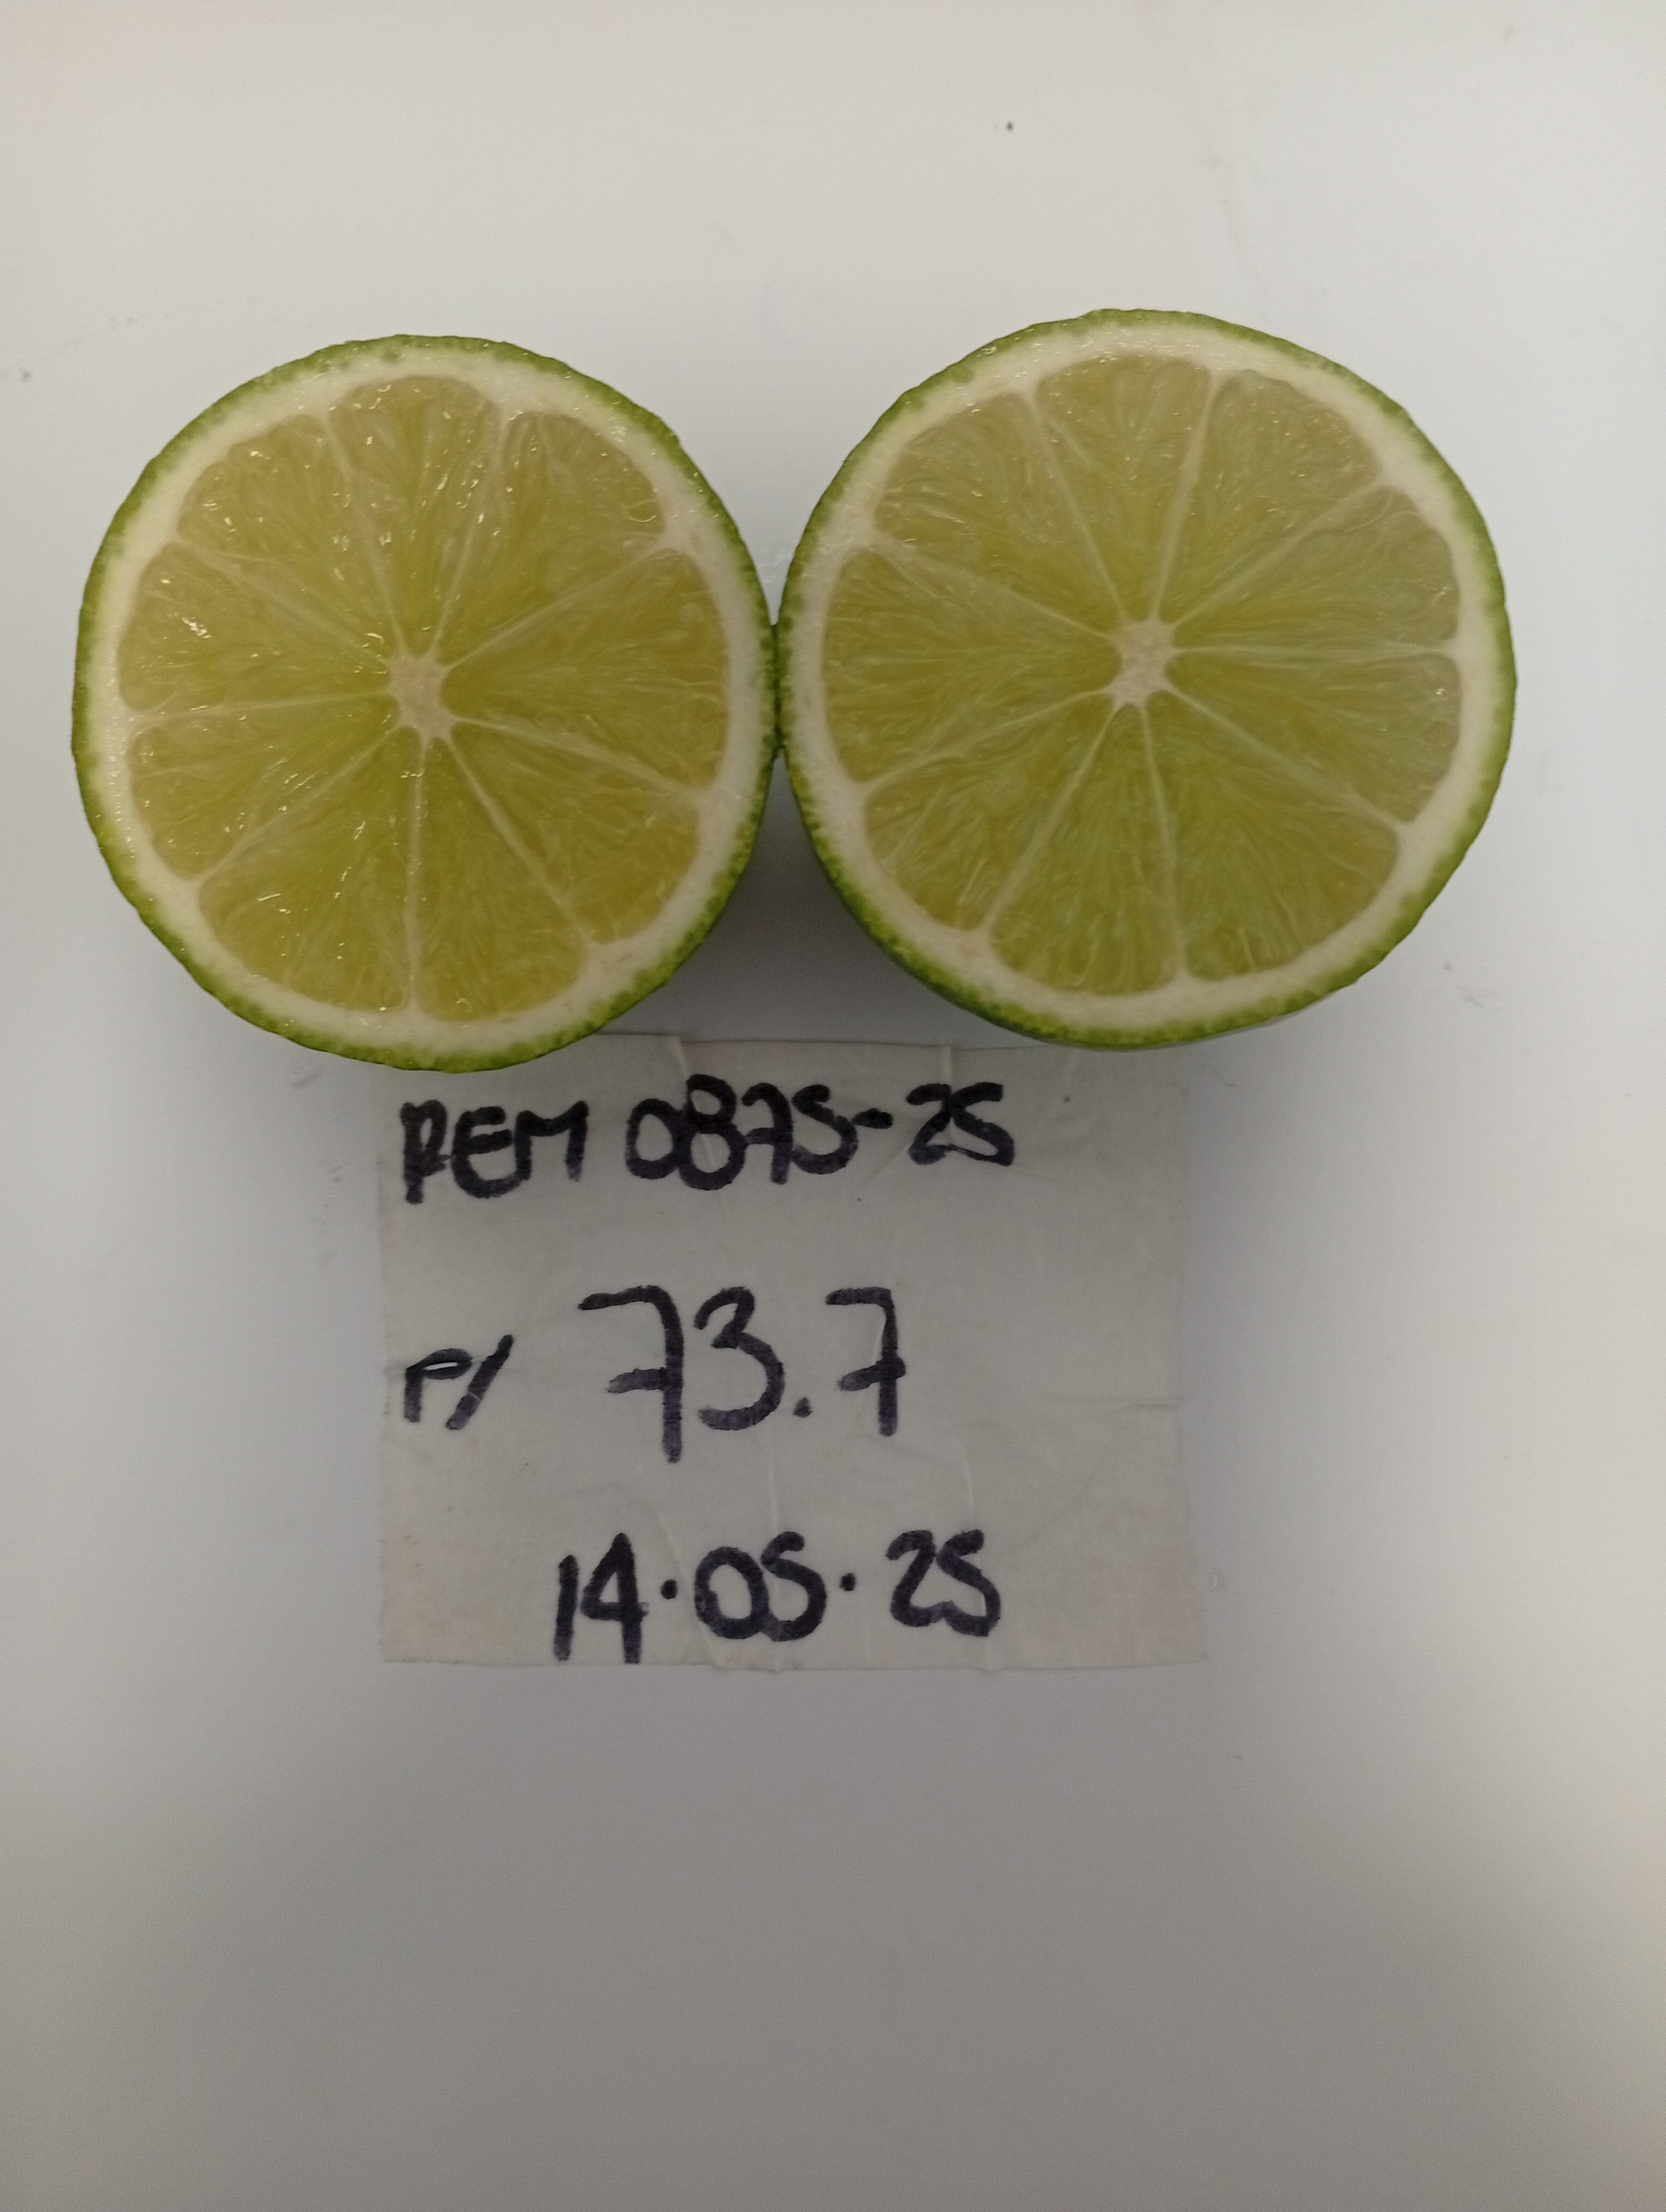 REM 0875-25
P/ 73.7
14.05.25